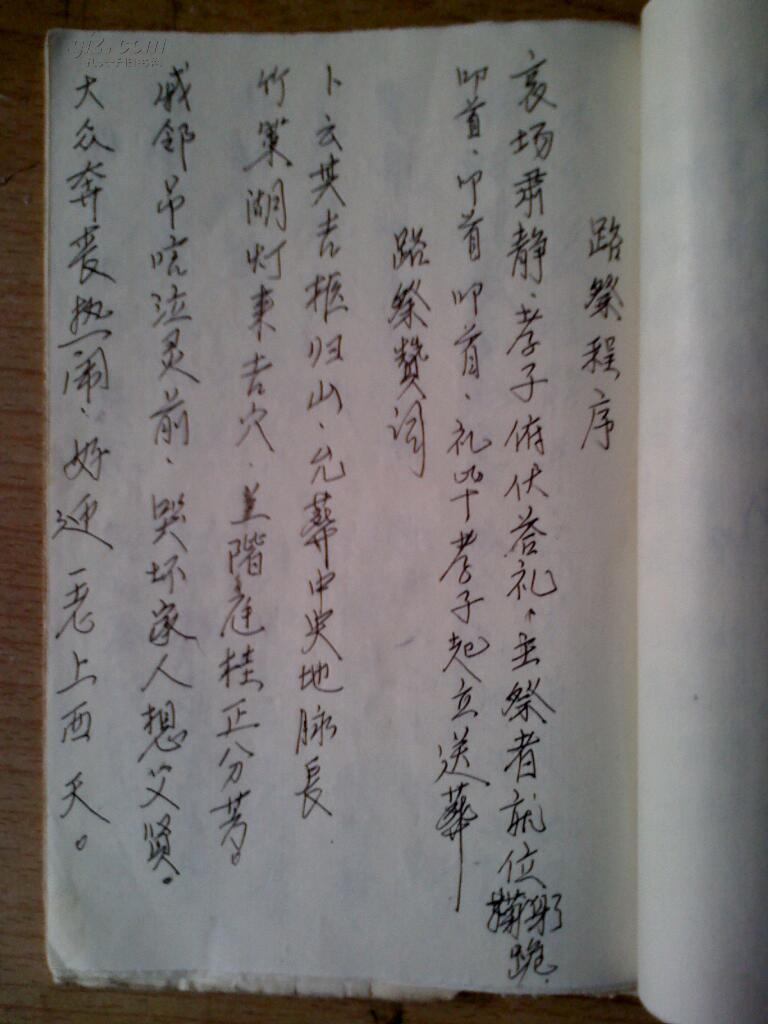 路祭程序
哀场肃静、孝子俯伏答礼、主祭者就位鞠躬跪、
叩首、叩首、叩首、礼毕孝子起立送葬
路祭赞词
卜云其吉柩归山、允葬中央地脉長
竹策湖灯来吉穴、兰階庭桂正分芳。
戚邻吊唁泣灵前、哭坏家人想父贤。
大众奔丧热闹、好迎一老上西天。